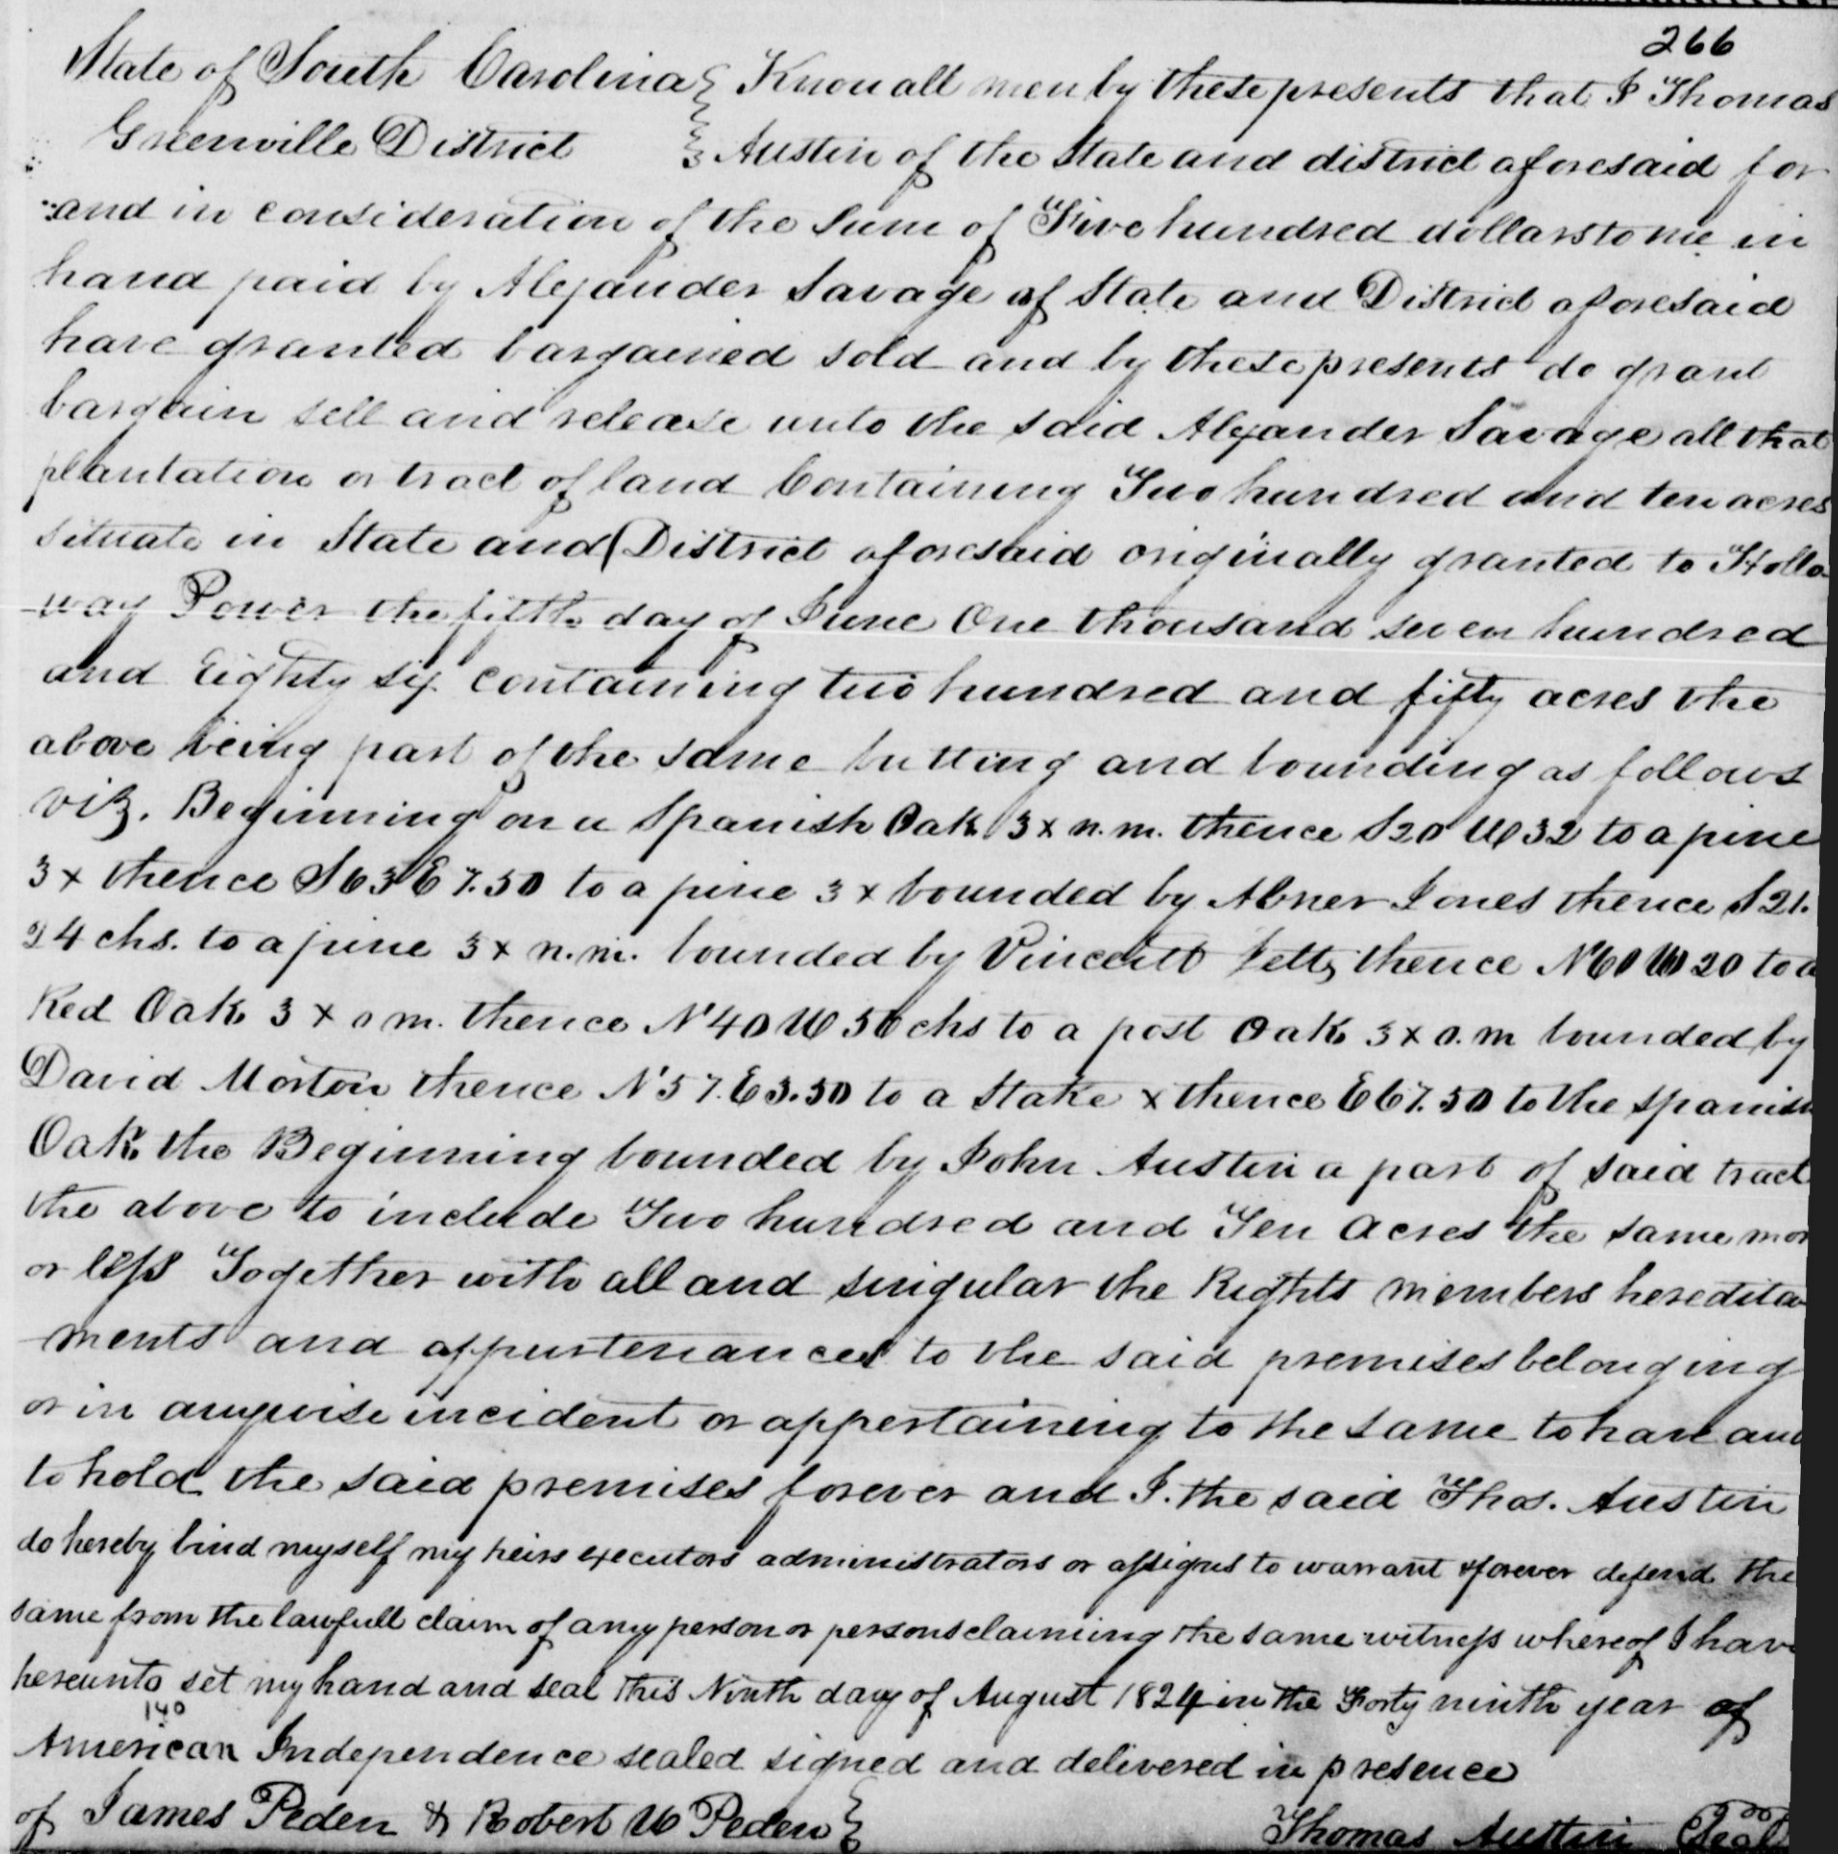 266
State of South Carolina } Know all men by these presents that I Thomas
Greenville District } Austin of the State and district aforesaid for
and in consideration of the Sum of Five hundred dollars to me in
hand paid by Alexander Savage of State and District aforesaid
have granted bargained sold and by these presents do grant
bargain sell and release unto the said Alexander Savage all that
plantation or tract of land Containing Two hundred and ten acres
situate in State and District aforesaid originally granted to Hollo-
-way Power the fifth day of June One thousand seven hundred
and Eighty six containing two hundred and fifty acres the
above being part of the same butting and bounding as follows
viz. Beginning on a Spanish Oak 3x n.m. thence S20 W32 to a pine
3x thence S63 E7.50 to a pine 3x bounded by Abner Jones thence S21.
24 chs. to a pine 3x n.m. bounded by Vincent thence N60 W20 to a
Red Oak 3x o m. thence N40 W 50 chs to a post Oak 3x o.m bounded by
David Morton thence N57. E3.50 to a Stake x thence E67.50 to the Spanish
Oak the Beginning bounded by John Austin a part of said tract
the above to include Two hundred and Ten acres the same mor
or less Together with all and singular the Rights members heredita
-ments and appurtenances to the said premises belonging
or in anywise incident or appertaining to the same to have and
to hold the said premises forever and I. the said Thos. Austin
do hereby bind myself my heirs executors administrators or assigns to warrant & forever defend the
same from the lawfull claim of any person or persons claiming the same witness whereof I have
hereunto set my hand and seal this Ninth day of August 1824 in the Forty ninth year of
140
American Independence sealed signed and delivered in presence
of James Peden & Robert W Peden } Thomas Austin (Seal)